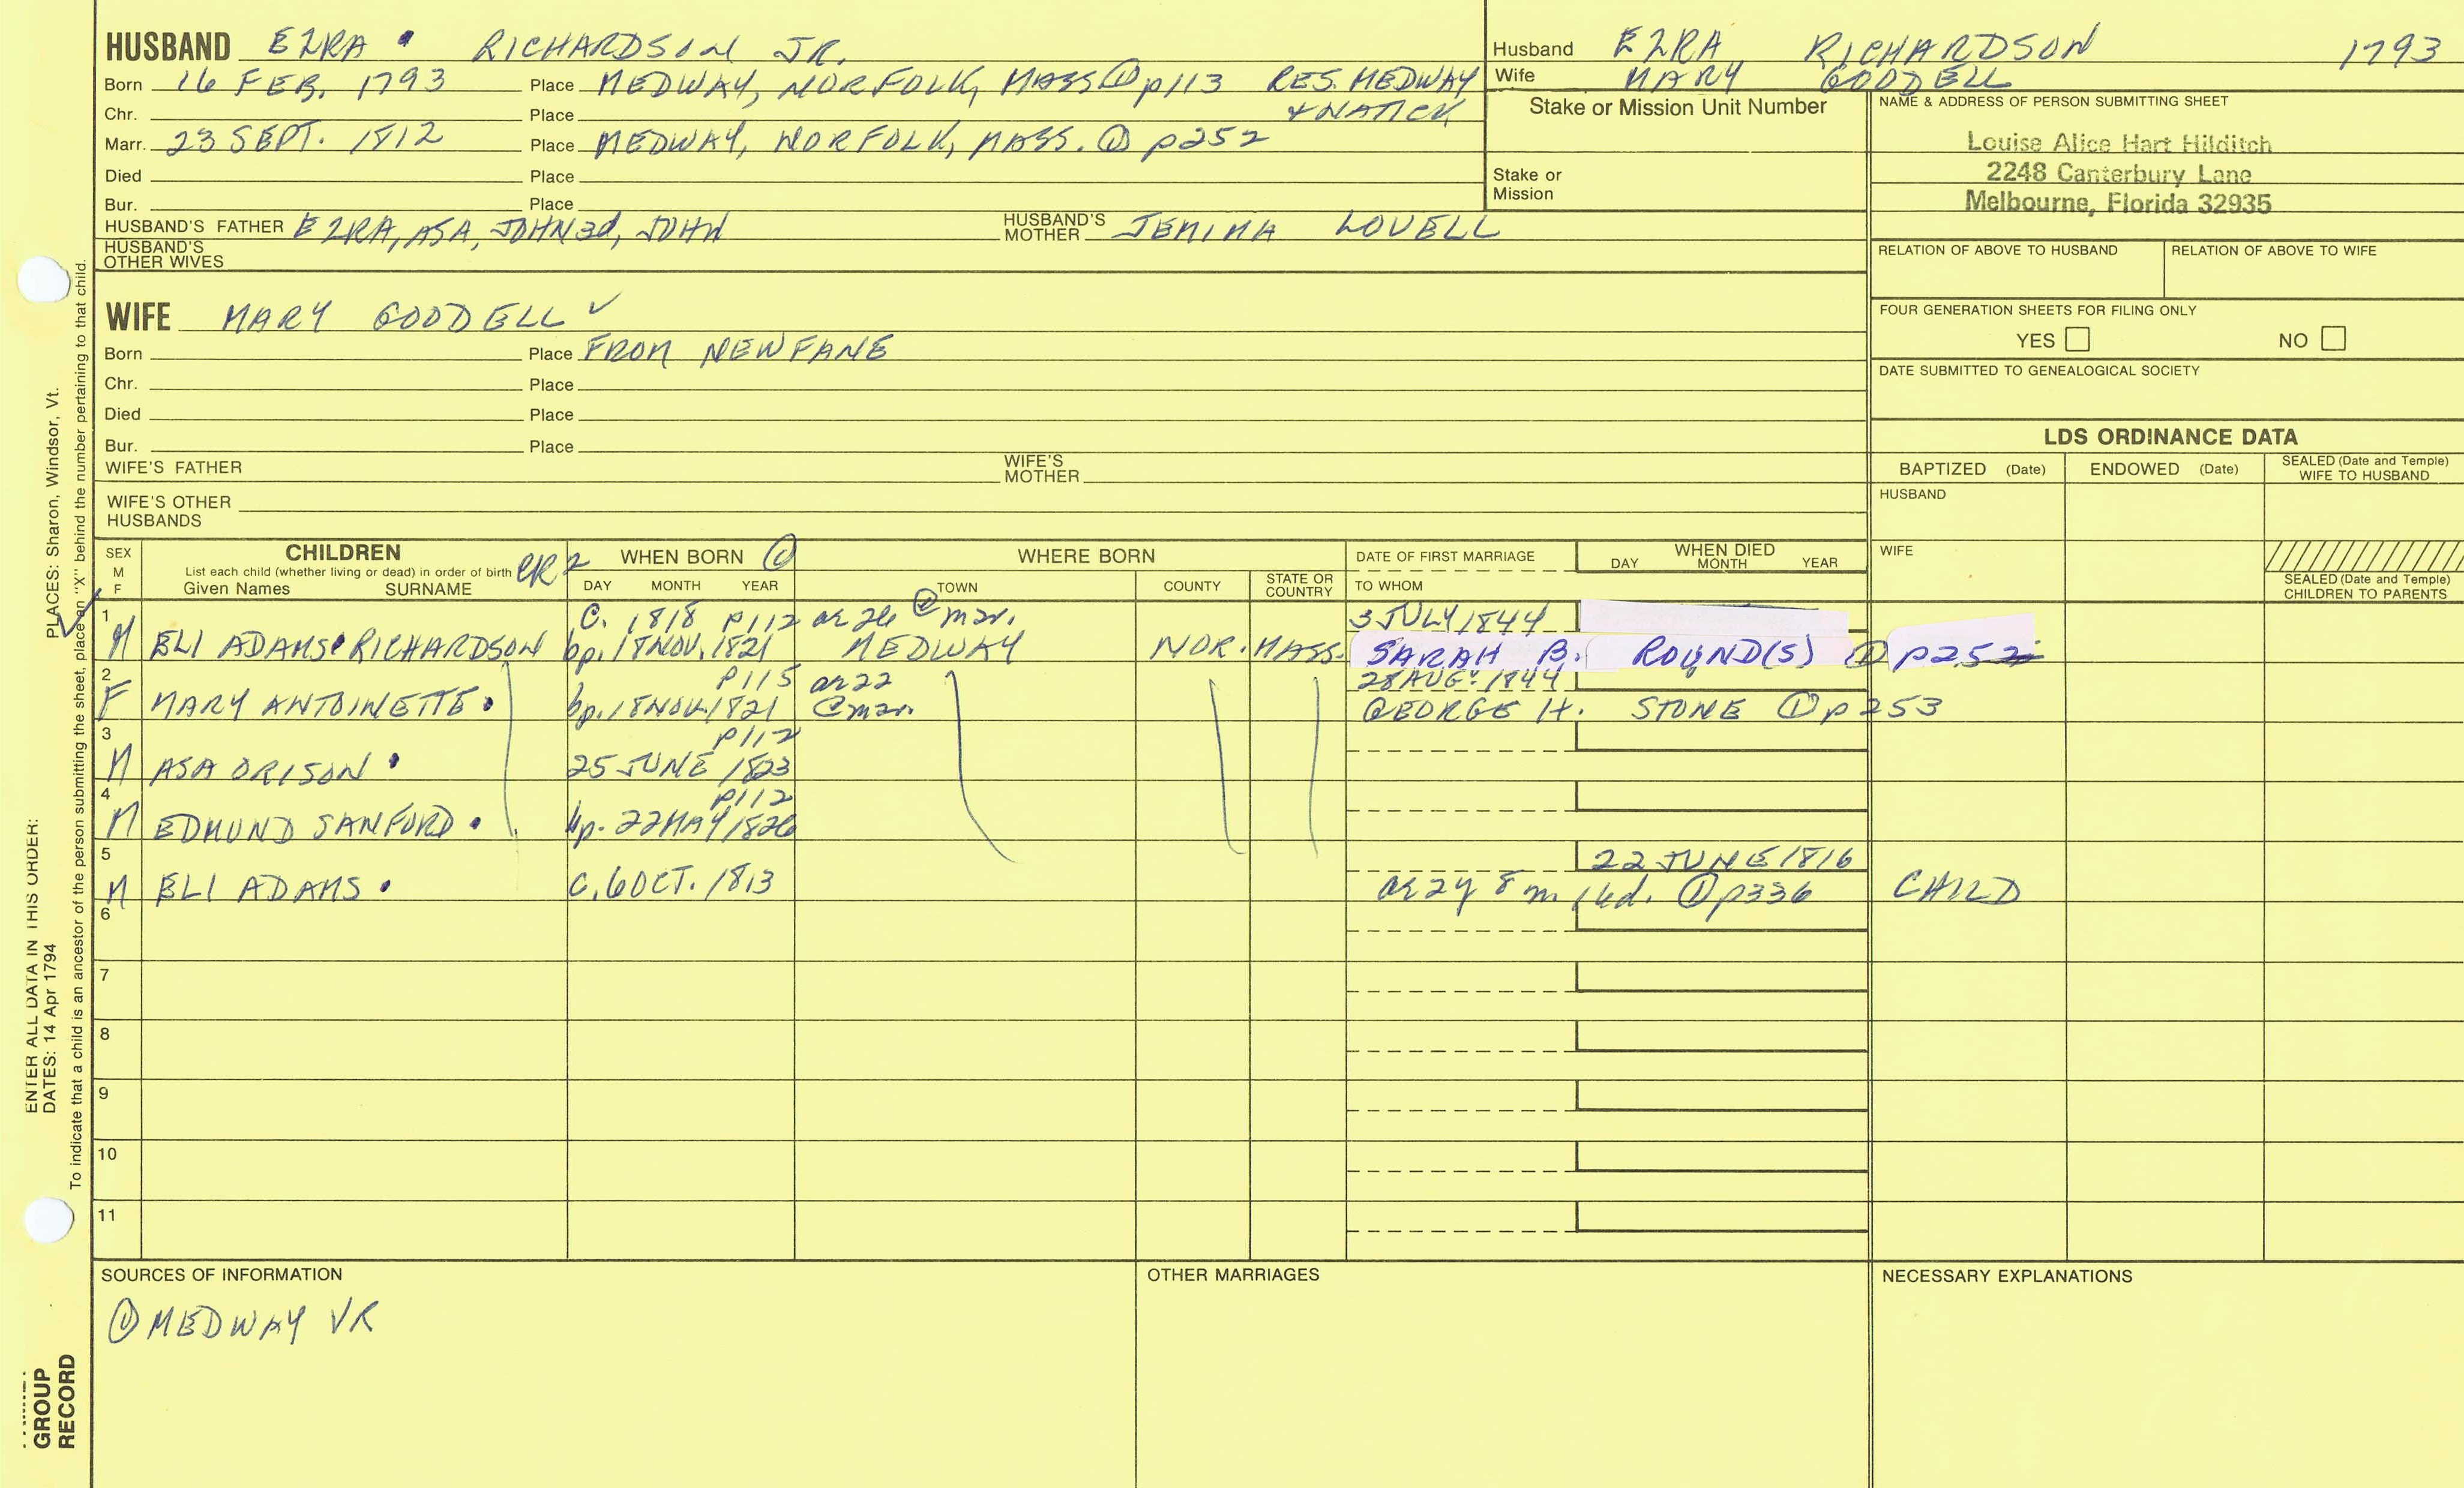 HUSBAND EZRA RICHARDSON JR.
Born 16 FEB. 1793 Place MEDWAY, NORFOLK, MASS ① p113 RES. MEDWAY
Chr. Place + NATICK
Marr. 23 SEPT. 1812 Place MEDWAY, NORFOLK, MASS. ① p252
Died Place
Bur. Place
HUSBAND'S FATHER EZRA, ASA, JOHN 3d, JOHN HUSBAND'S MOTHER JEMIMA LOVELL
HUSBAND'S OTHER WIVES
Husband EZRA RICHARDSON 1793
Wife MARY GOODELL
Stake or Mission Unit Number
Stake or
Mission
NAME & ADDRESS OF PERSON SUBMITTING SHEET
Louise Alice Hart Hilditch
2248 Canterbury Lane
Melbourne, Florida 32935
RELATION OF ABOVE TO HUSBAND RELATION OF ABOVE TO WIFE
FOUR GENERATION SHEETS FOR FILING ONLY
YES NO
DATE SUBMITTED TO GENEALOGICAL SOCIETY
WIFE MARY GOODELL ✓
Born Place FROM NEWFANE
Chr. Place
Died Place
Bur. Place
WIFE'S FATHER WIFE'S MOTHER
WIFE'S OTHER
HUSBANDS
LDS ORDINANCE DATA
BAPTIZED (Date) ENDOWED (Date) SEALED (Date and Temple) WIFE TO HUSBAND
HUSBAND
WIFE
SEALED (Date and Temple)
CHILDREN TO PARENTS
SEX
M
F
CHILDREN
List each child (whether living or dead) in order of birth CR2
Given Names SURNAME
WHEN BORN ①
DAY MONTH YEAR
WHERE BORN
TOWN COUNTY STATE OR COUNTRY
DATE OF FIRST MARRIAGE
TO WHOM
WHEN DIED
DAY MONTH YEAR
1 C. 1818 p112 ae 26 @ mar. 3 JULY 1844
M ELI ADAMS RICHARDSON bp. 18 NOV. 1821 MEDWAY NOR. MASS. SARAH B. ROUND(S) ① p252
2 p115 ae 22 28 AUG. 1844
F MARY ANTOINETTE bp. 18 NOV. 1821 @ mar. GEORGE H. STONE ① p253
3 p112
M ASA ORISON 25 JUNE 1823
4 p112
M EDMUND SANFORD bp. 22 MAY 1826
5 22 JUNE 1816
M ELI ADAMS C. 6 OCT. 1813 ae 2y 8m 16d. ① p336 CHILD
6
7
8
9
10
11
SOURCES OF INFORMATION
① MEDWAY VR
OTHER MARRIAGES
NECESSARY EXPLANATIONS
ENTER ALL DATA IN THIS ORDER:
DATES: 14 Apr 1794 PLACES: Sharon, Windsor, Vt.
To indicate that a child is an ancestor of the person submitting the sheet, place an "X" behind the number pertaining to that child.
GROUP
RECORD